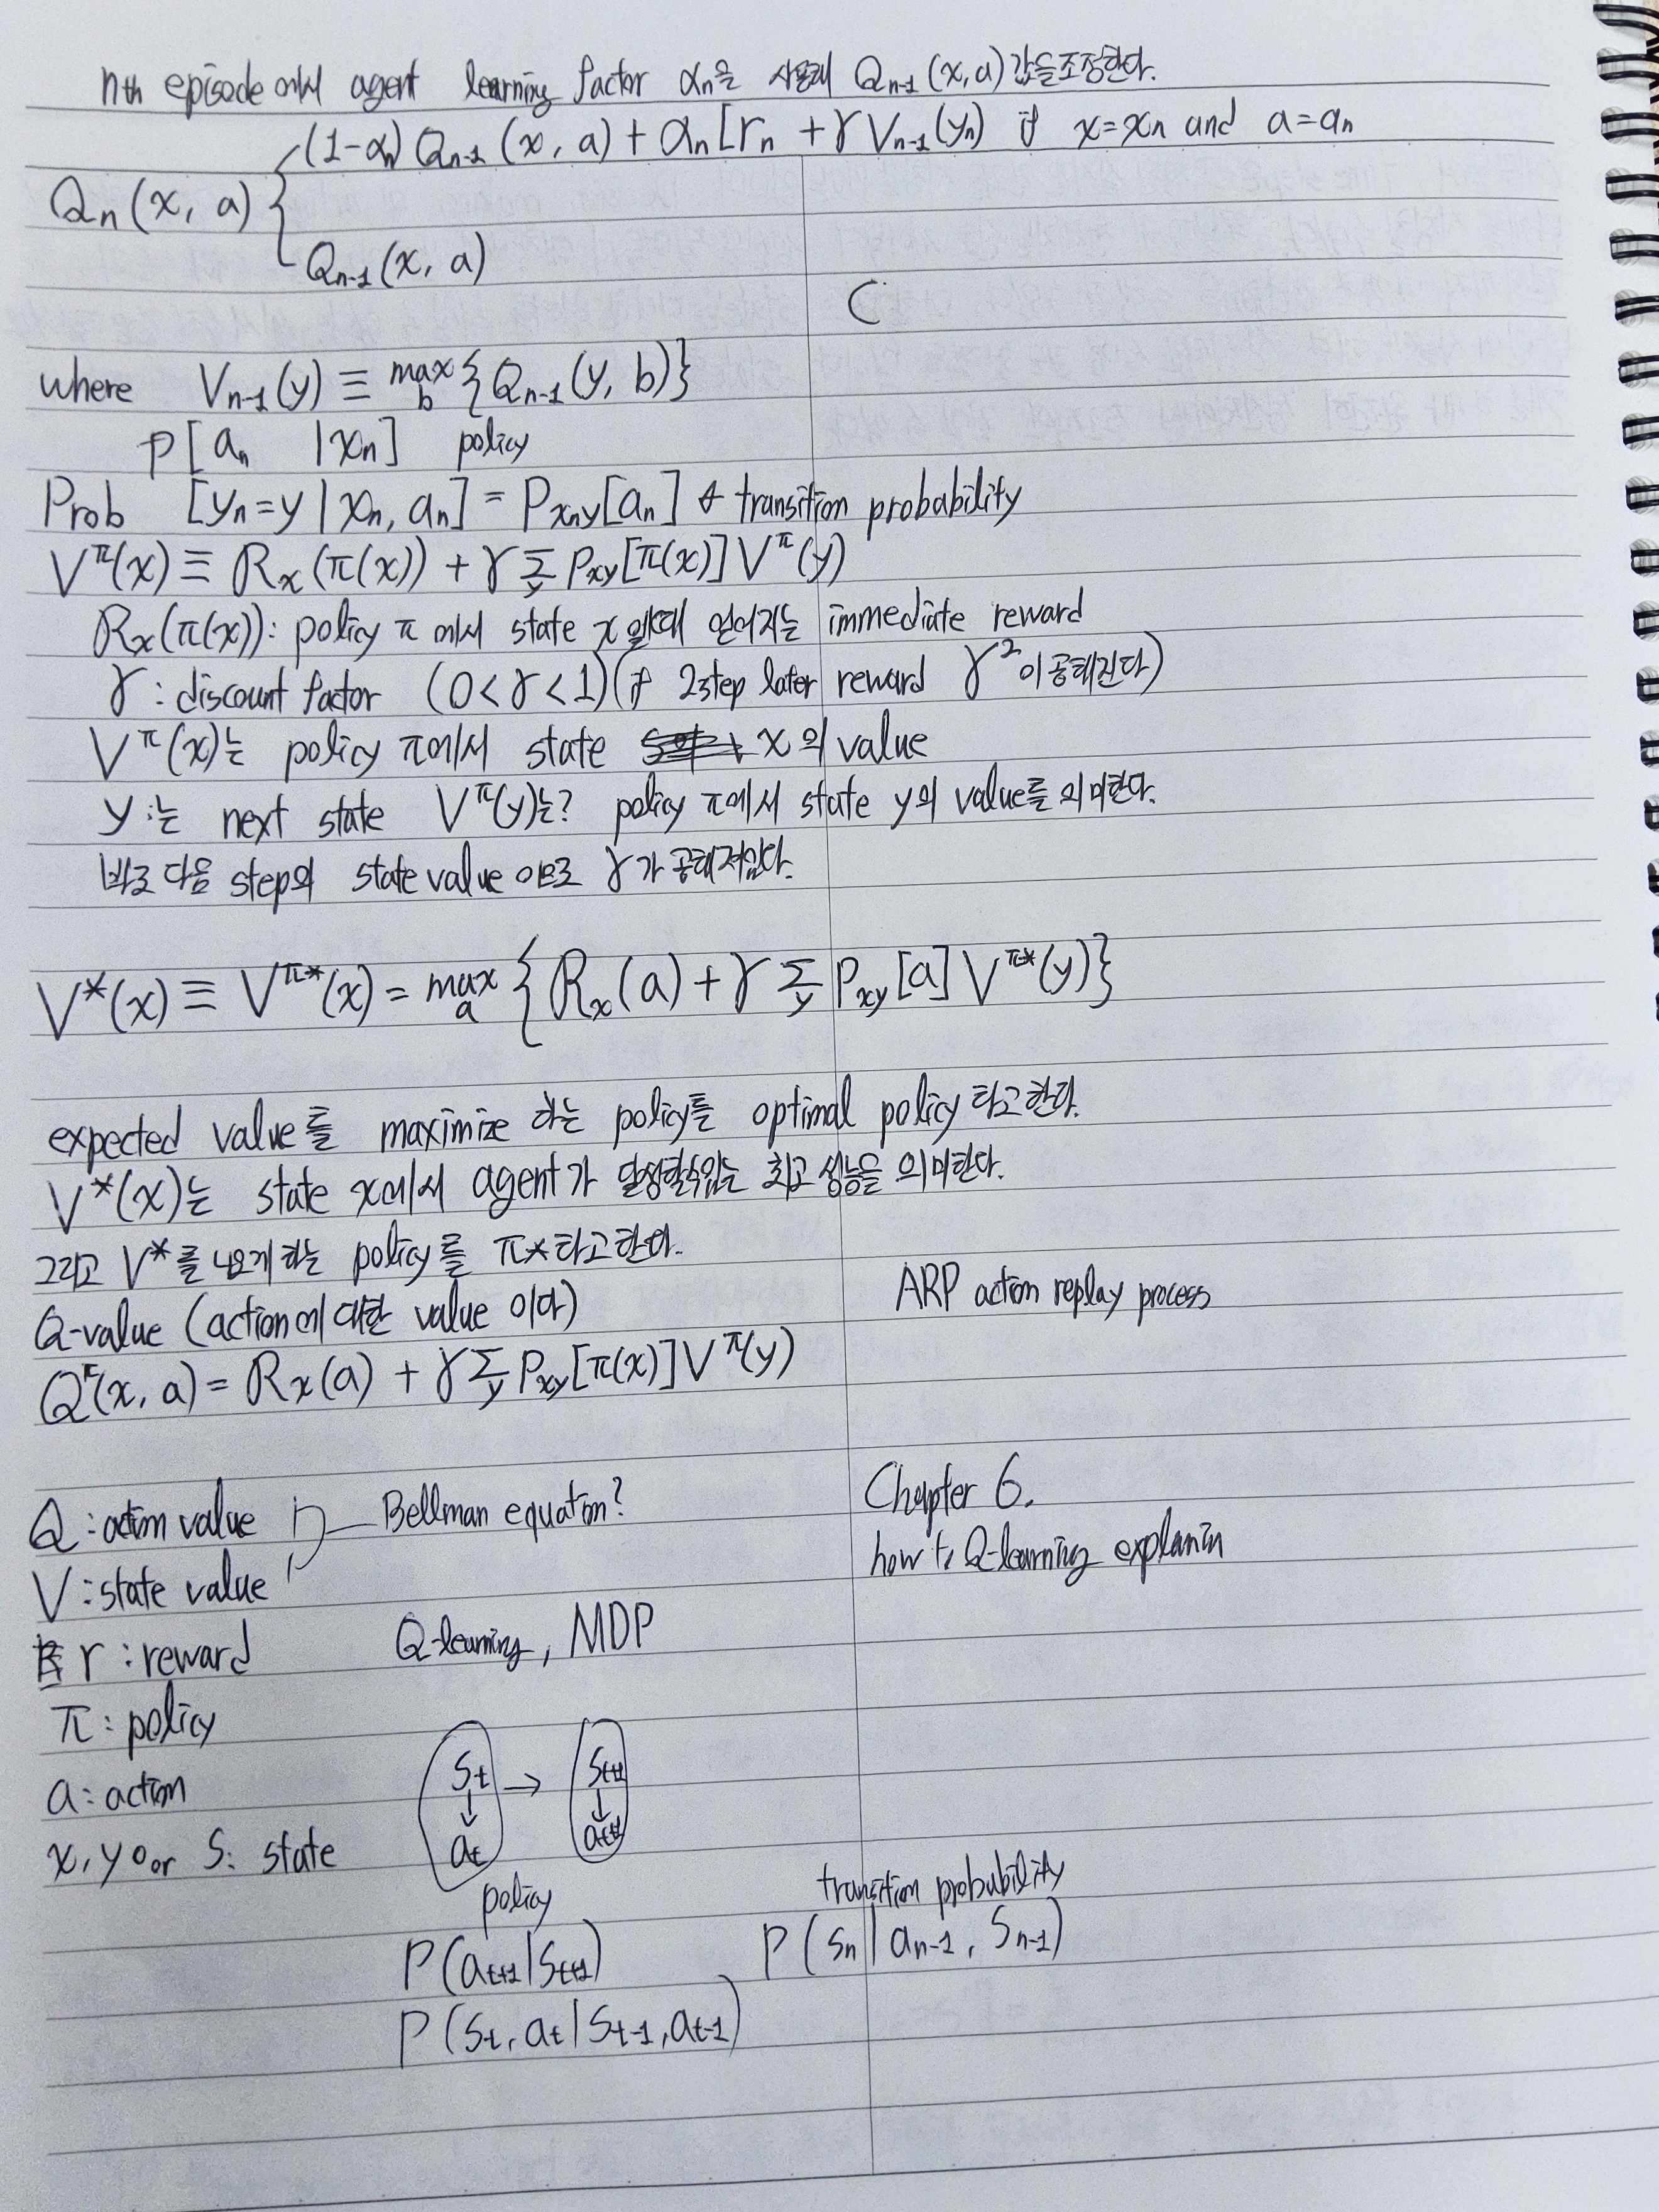 nth episode에서 agent learning factor αn을 사용해 Qn-1(x, a)값을 조정한다.
Qn(x, a) { (1-αn) Qn-1(x, a) + αn[rn + γVn-1(yn) if x=xn and a=an
Qn-1(x, a)
C
where Vn-1(y) ≡ max b {Qn-1(y, b)}
P[an |xn] policy
Prob [yn=y | xn, an] = Pxny[an] ← transition probability
V^π(x) ≡ Rx(π(x)) + γ Σy Pxy[π(x)] V^π(y)
Rx(π(x)): policy π 에서 state x일때 얻어지는 immediate reward
γ : discount factor (0<γ<1)(if 2step later reward γ²이 곱해진다)
V^π(x)는 policy π에서 state x의 value
y:는 next state V^π(y)는? policy π에서 state y의 value를 의미한다.
바로 다음 step의 state value 이므로 γ가 곱해져있다.
V*(x) ≡ V^π*(x) = max a {Rx(a) + γ Σy Pxy[a] V^π*(y)}
expected value를 maximize 하는 policy를 optimal policy 라고한다.
V*(x)는 state x에서 agent가 달성할수있는 최고 성능을 의미한다.
그리고 V*를 나오게 하는 policy를 π*라고한다.
ARP action replay process
Q-value (action에 대한 value 이다)
Q^π(x, a) = Rx(a) + γ Σy Pxy[π(x)] V^π(y)
Chapter 6.
how to Q-learning explanin
Q : action value
Bellman equation?
V : state value
r : reward
Q-learning, MDP
π : policy
a : action
x, y or S: state
St → St+1
↓ ↓
at at+1
policy
transition probability
P(at+1|St+1)
P(Sn|an-1, Sn-1)
P(St, at|St-1, at-1)